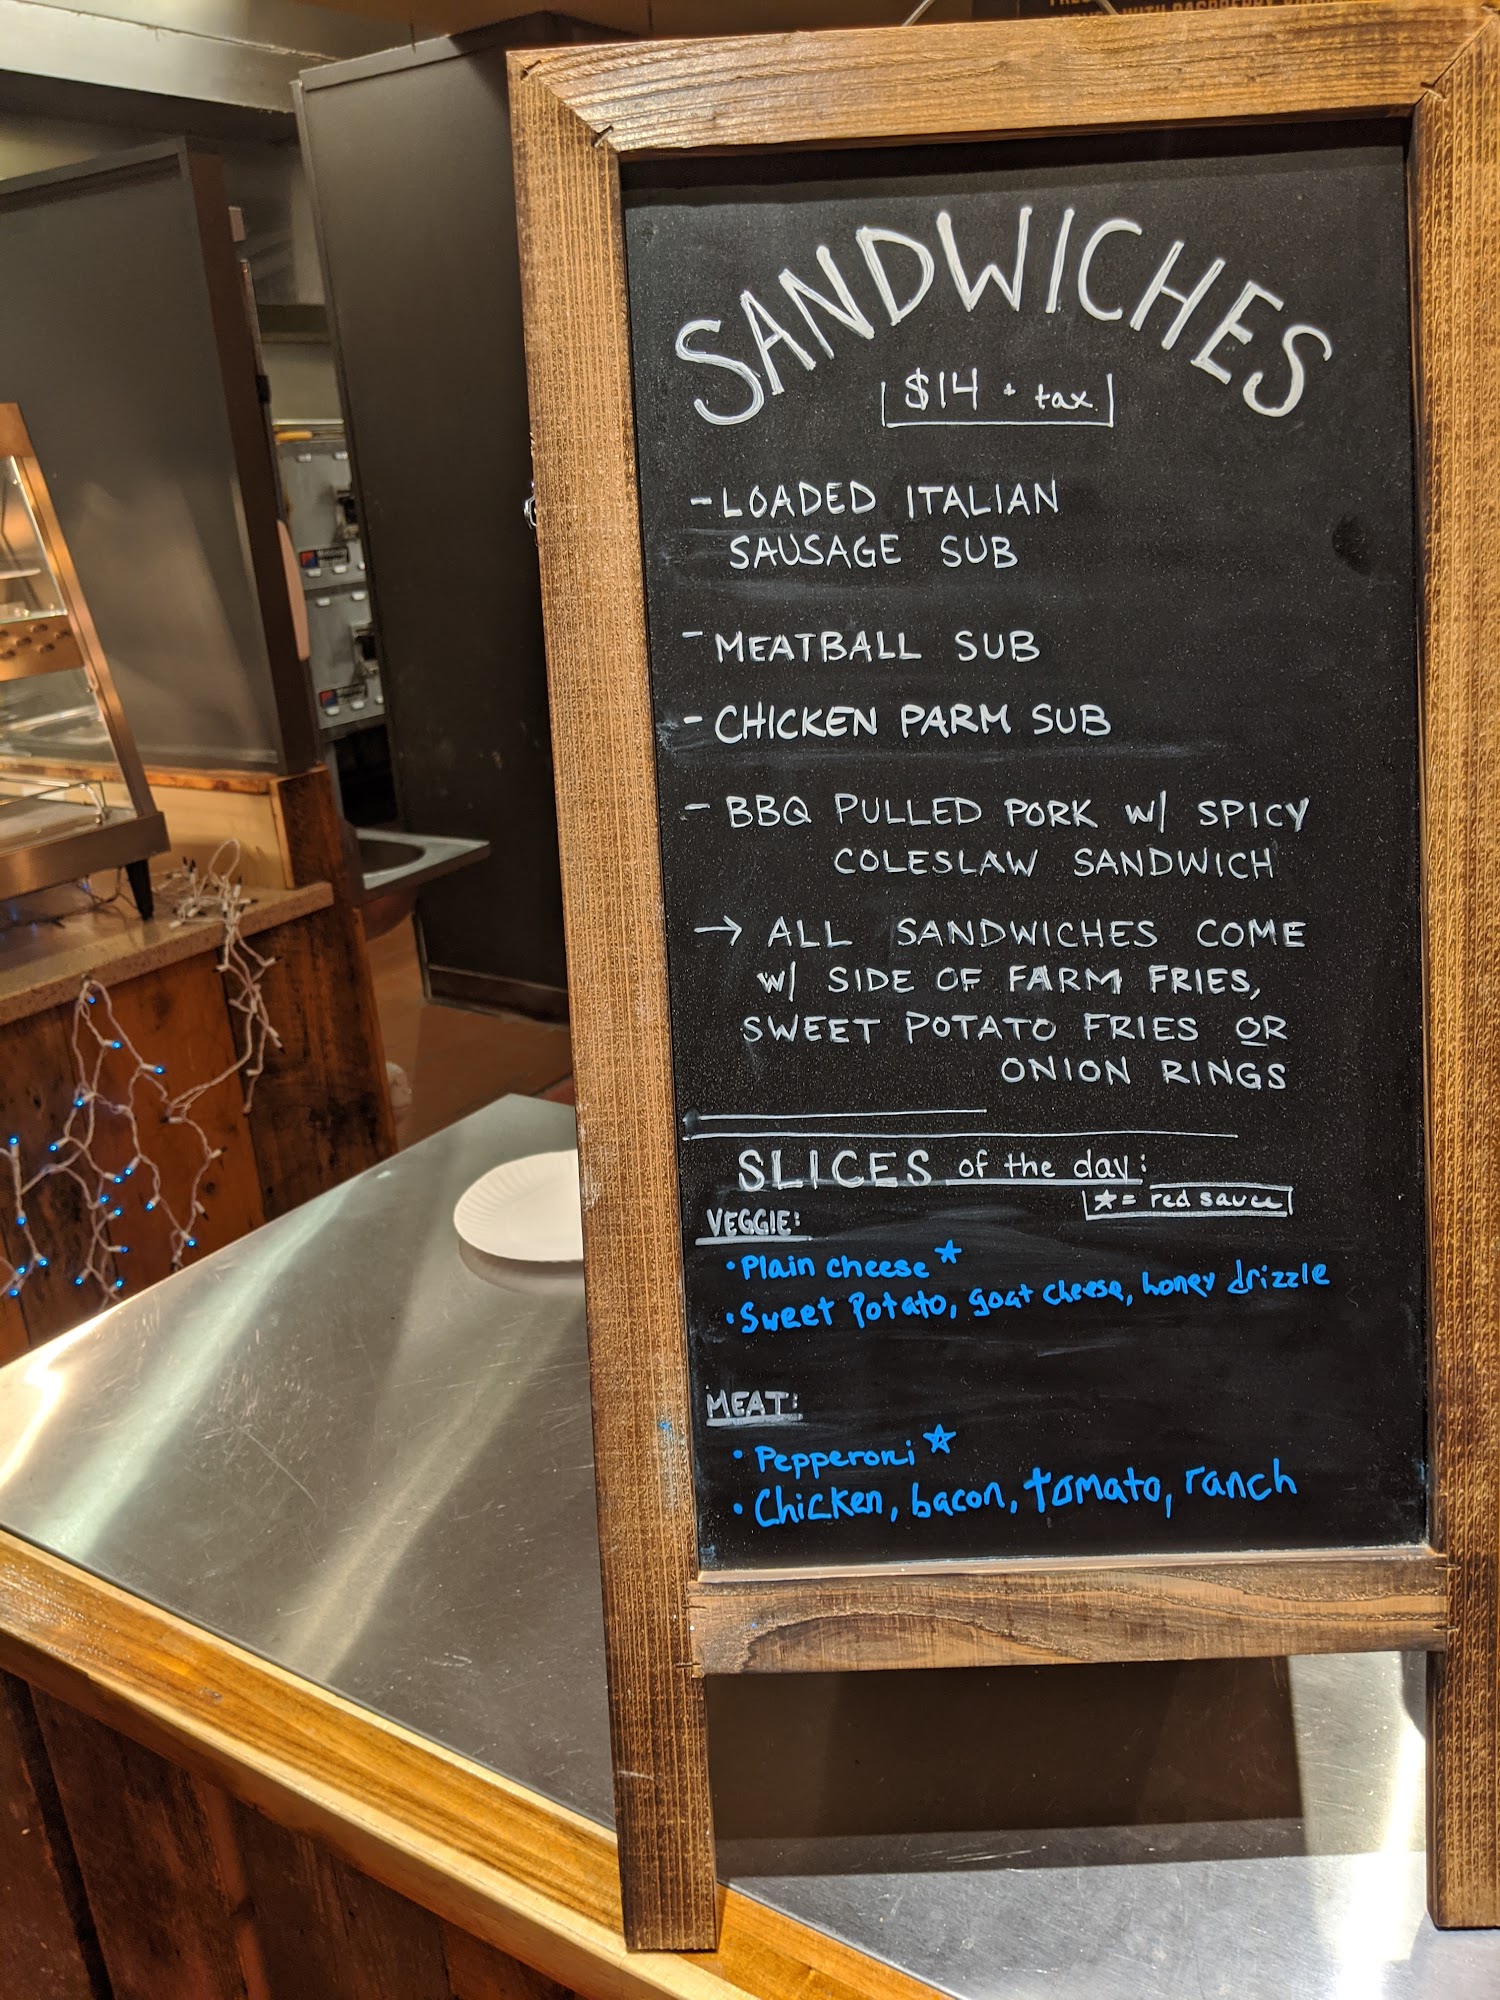 WITH RASPBERRY
SANDWICHES
$14 + tax
- LOADED ITALIAN
SAUSAGE SUB
- MEATBALL SUB
- CHICKEN PARM SUB
- BBQ PULLED PORK W/ SPICY
COLESLAW SANDWICH
→ ALL SANDWICHES COME
W/ SIDE OF FARM FRIES,
SWEET POTATO FRIES OR
ONION RINGS
SLICES of the day:
★ = red sauce
VEGGIE:
• Plain cheese ★
• Sweet Potato, goat cheese, honey drizzle
MEAT:
• Pepperoni ★
• Chicken, bacon, tomato, ranch